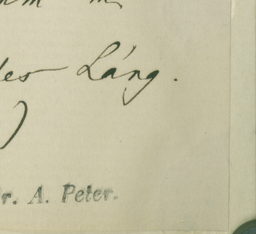 des Láng.
)
r. A. Peter.